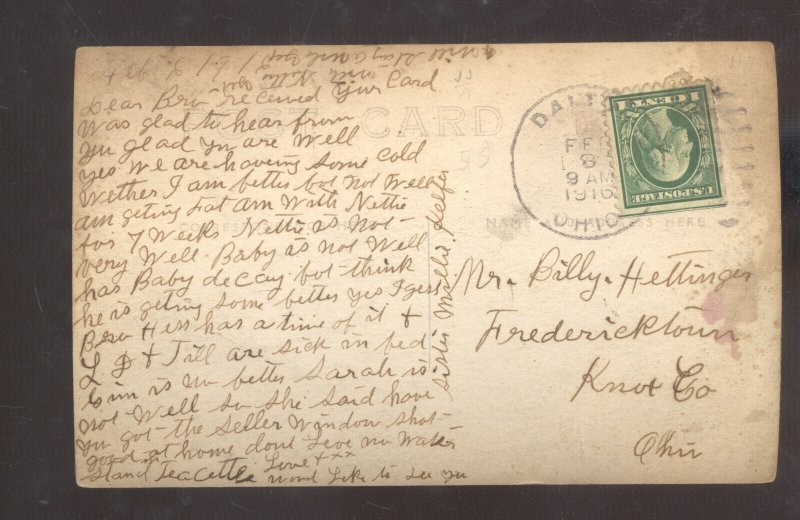 Dear Bro received your Card
Was glad to hear from
you glad you are Well
yes we are having some cold
Wether I am better but not Well
am geting fat am With Nettie
for 7 Weeks Nettie is not
very Well Baby is not Well
has Baby decay but think
he is geting some better yes I gess
Bro Hess has a time of it +
L D + Till are sick in bed
is no better Sarah is
not Well so she said have
you got the seller Window shut
good at home dont Leve no Water
stand in Tea Cettle Love + xx
Woud Like to See you
Sister Mollie
POST CARD
NAME AND ADDRESS HERE
DALTON
FEB
8
9 AM
1916
OHIO
1 CENT 1
U.S. POSTAGE
Mr. Billy. Hettinger
Fredericktown
Knox Co
Ohio